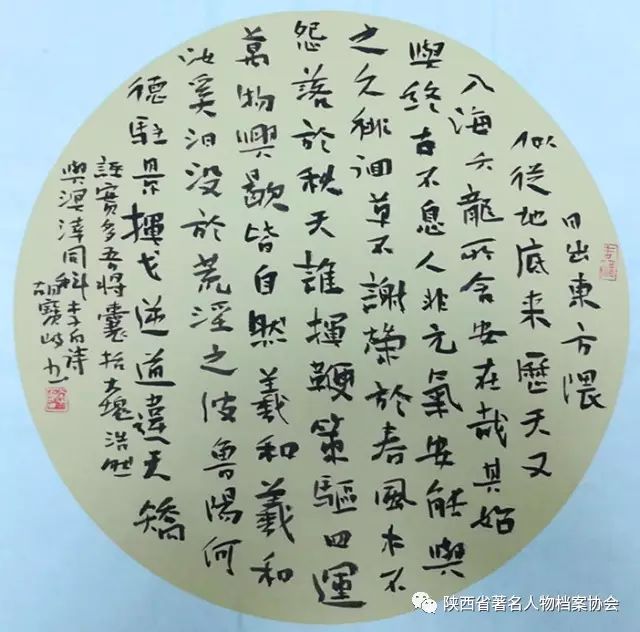 日出東方隈
似從地底来歷天又
入海六龍所舍安在哉其始
與終古不息人非元氣安能與
之久徘徊草不謝榮於春風木不
怨落於秋天誰揮鞭策驅四運
萬物興歇皆自然羲和羲和
汝奚汨没於荒淫之波魯陽何
德駐景揮戈逆道違天矯
誣實多吾將囊括大塊浩然
與溟涬同科李白詩
胡寶岐书
陕西省著名人物档案协会